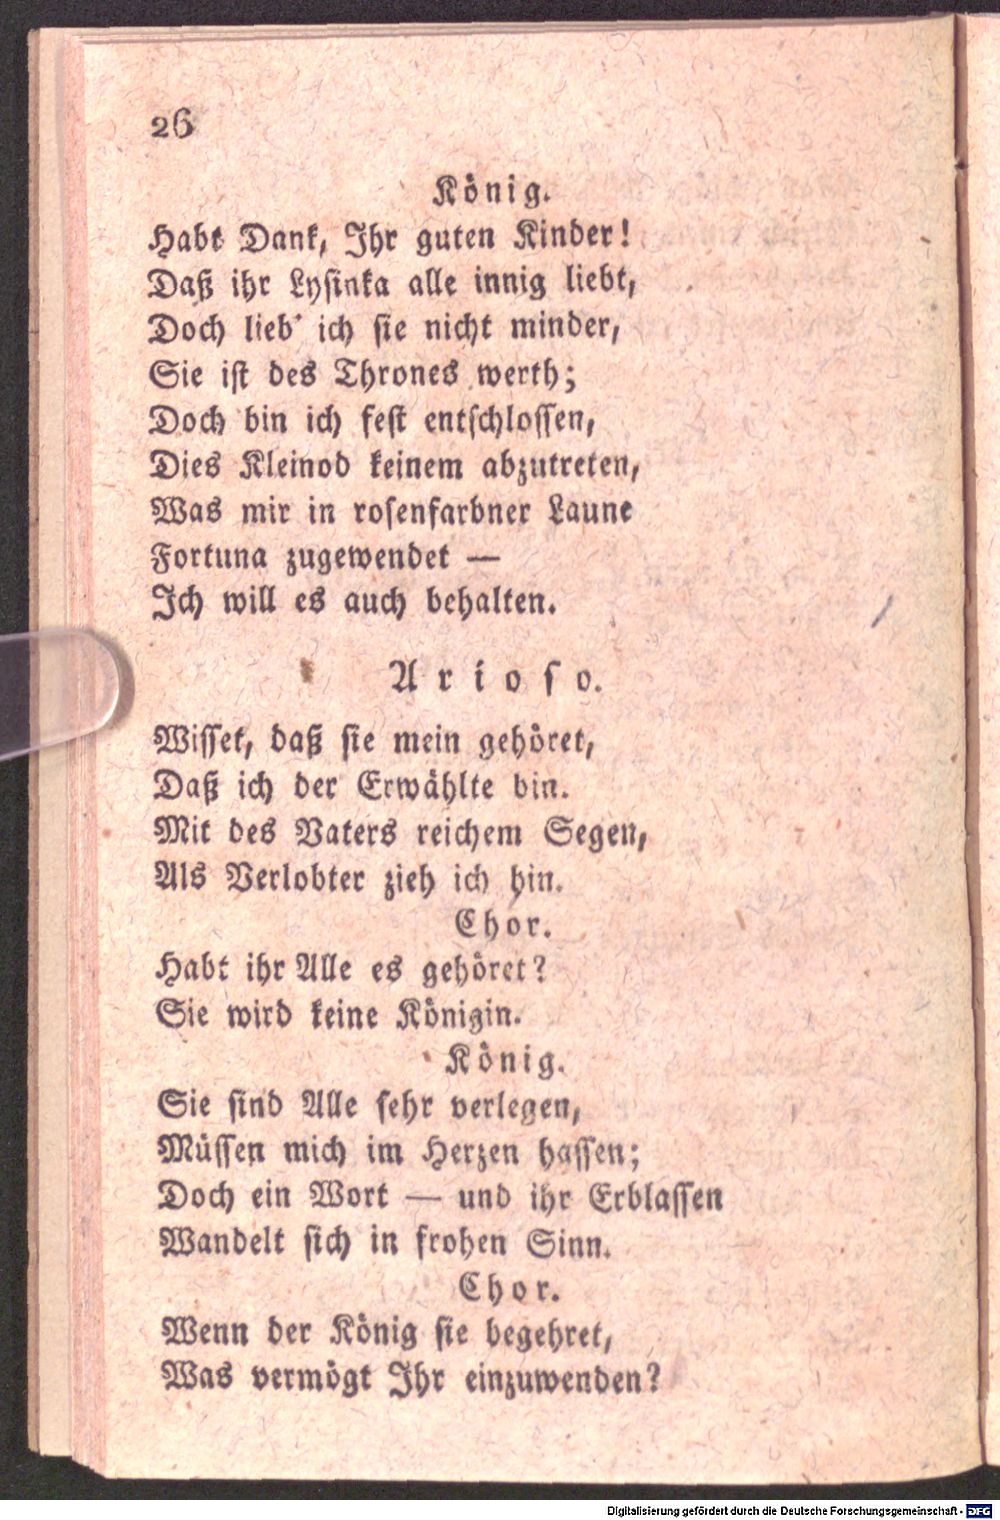 26
König.
Habt Dank, Ihr guten Kinder!
Daß ihr Lysinka alle innig liebt,
Doch lieb' ich sie nicht minder,
Sie ist des Thrones werth;
Doch bin ich fest entschlossen,
Dies Kleinod keinem abzutreten,
Was mir in rosenfarbner Laune
Fortuna zugewendet —
Ich will es auch behalten.
Arioso.
Wisset, daß sie mein gehöret,
Daß ich der Erwählte bin.
Mit des Vaters reichem Segen,
Als Verlobter zieh ich hin.
Chor.
Habt ihr Alle es gehöret?
Sie wird keine Königin.
König.
Sie sind Alle sehr verlegen,
Müssen mich im Herzen hassen;
Doch ein Wort — und ihr Erblassen
Wandelt sich in frohen Sinn.
Chor.
Wenn der König sie begehret,
Was vermögt Ihr einzuwenden?
Digitalisierung gefördert durch die Deutsche Forschungsgemeinschaft - DFG